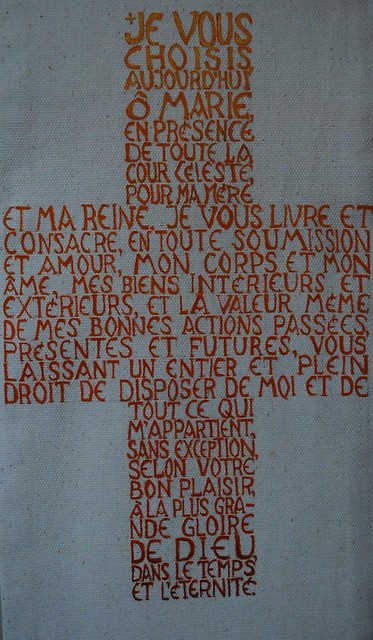 +JE VOUS
CHOISIS
AUJOURD'HUI
Ô MARIE
EN PRÉSENCE
DE TOUTE LA
COUR CÉLESTE
POUR MA MÈRE
ET MA REINE. JE VOUS LIVRE ET
CONSACRE, EN TOUTE SOUMISSION
ET AMOUR, MON CORPS ET MON
ÂME, MES BIENS INTÉRIEURS ET
EXTÉRIEURS, ET LA VALEUR MÊME
DE MES BONNES ACTIONS PASSÉES,
PRÉSENTES ET FUTURES, VOUS
LAISSANT UN ENTIER ET PLEIN
DROIT DE DISPOSER DE MOI ET DE
TOUT CE QUI
M'APPARTIENT,
SANS EXCEPTION,
SELON VOTRE
BON PLAISIR,
À LA PLUS GRA-
NDE GLOIRE
DE DIEU,
DANS LE TEMPS
ET L'ÉTERNITÉ.